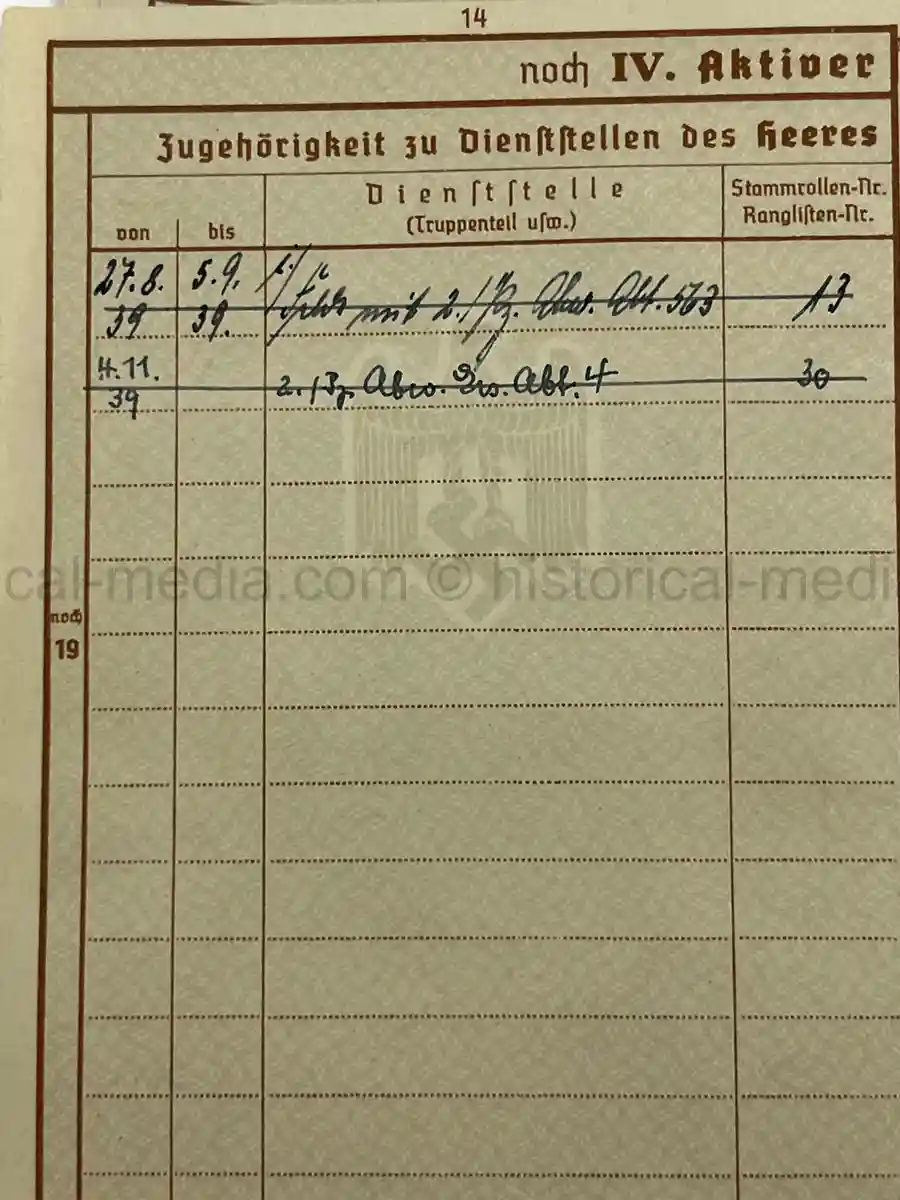 14
noch IV. Aktiver
Zugehörigkeit zu Dienststellen des Heeres
von
bis
Dienststelle
(Truppenteil usw.)
Stammrollen-Nr.
Ranglisten-Nr.
27.8. 5.9.
39 39. mit 2./Pz. Abw. Abt. 563 13
4.11.
39 2./Pz. Abw. Ers. Abt. 4 30
cal-media.com © historical-medi
noch
19